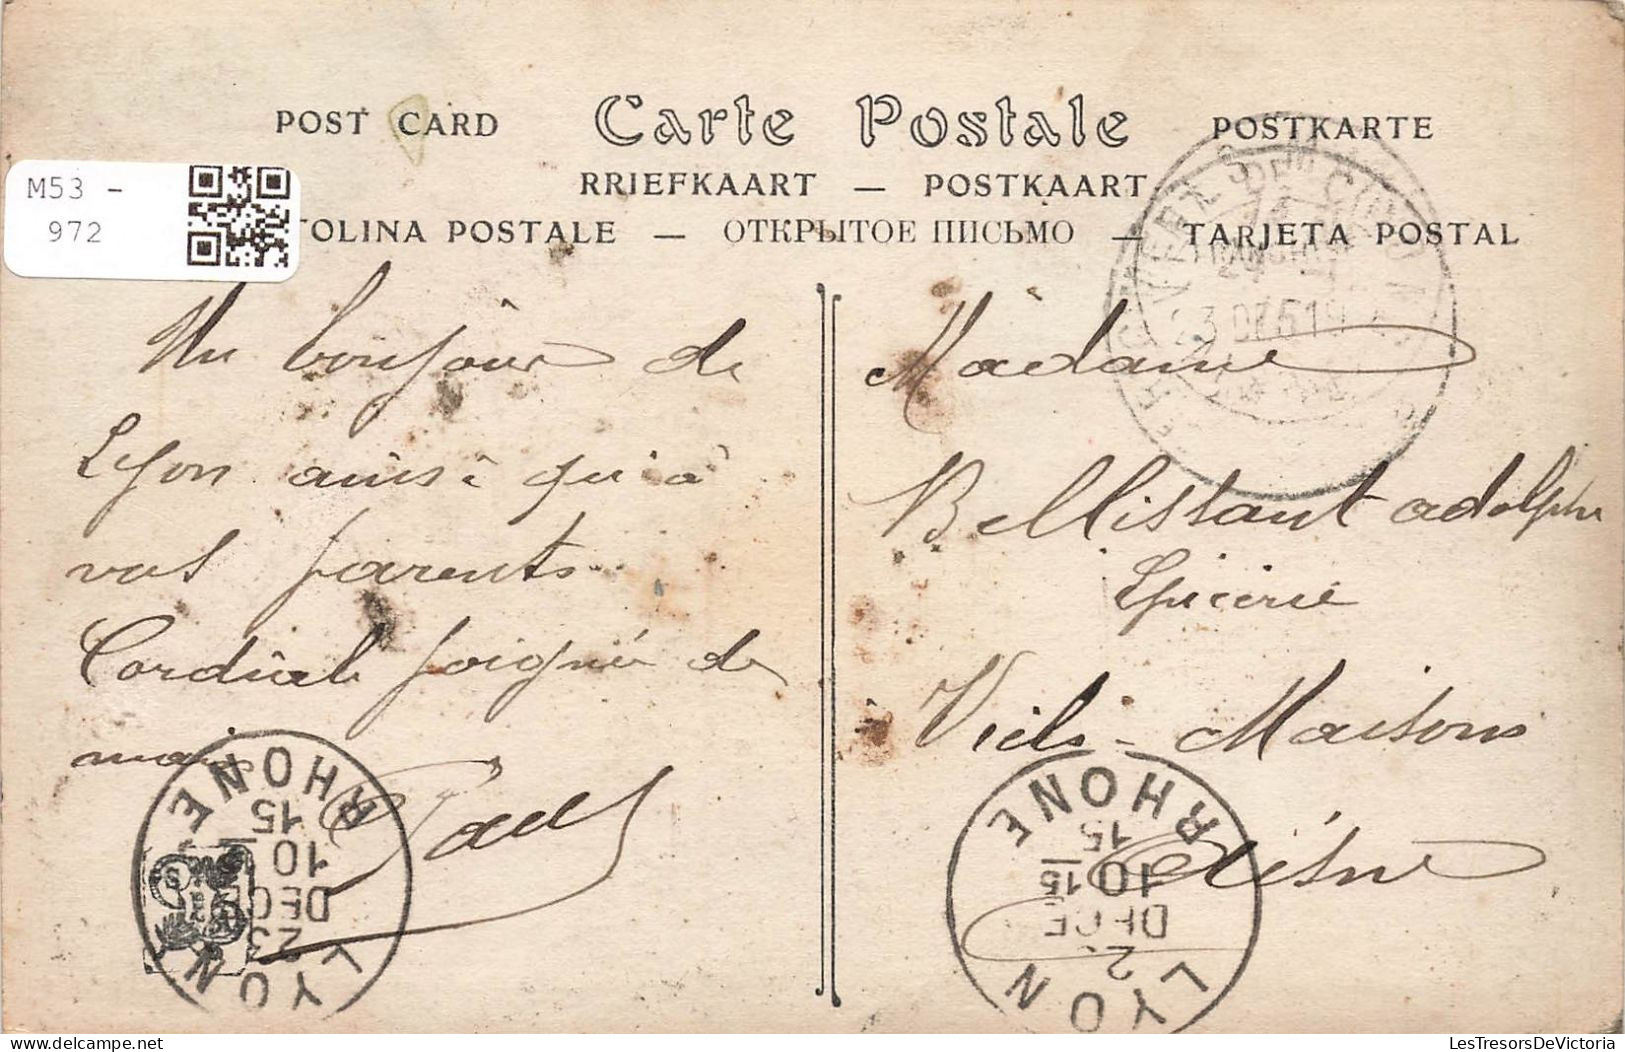 POST CARD Carte Postale POSTKARTE
RRIEFKAART — POSTKAART
TOLINA POSTALE — ОТКРЫТОЕ ПИСЬМО — TARJETA POSTAL
M53 -
972
Un bonjour de
Lyon ainsi qu'à
vos parents
Cordial poignée de
main
Paul
Madame
Bellistant adolphe
Epicerie
Viels-Maisons
Aisne
LYON RHONE
15
10
DECE
23
LYON RHONE
15
10 15
DECE
2
LesTresorsDeVictoria